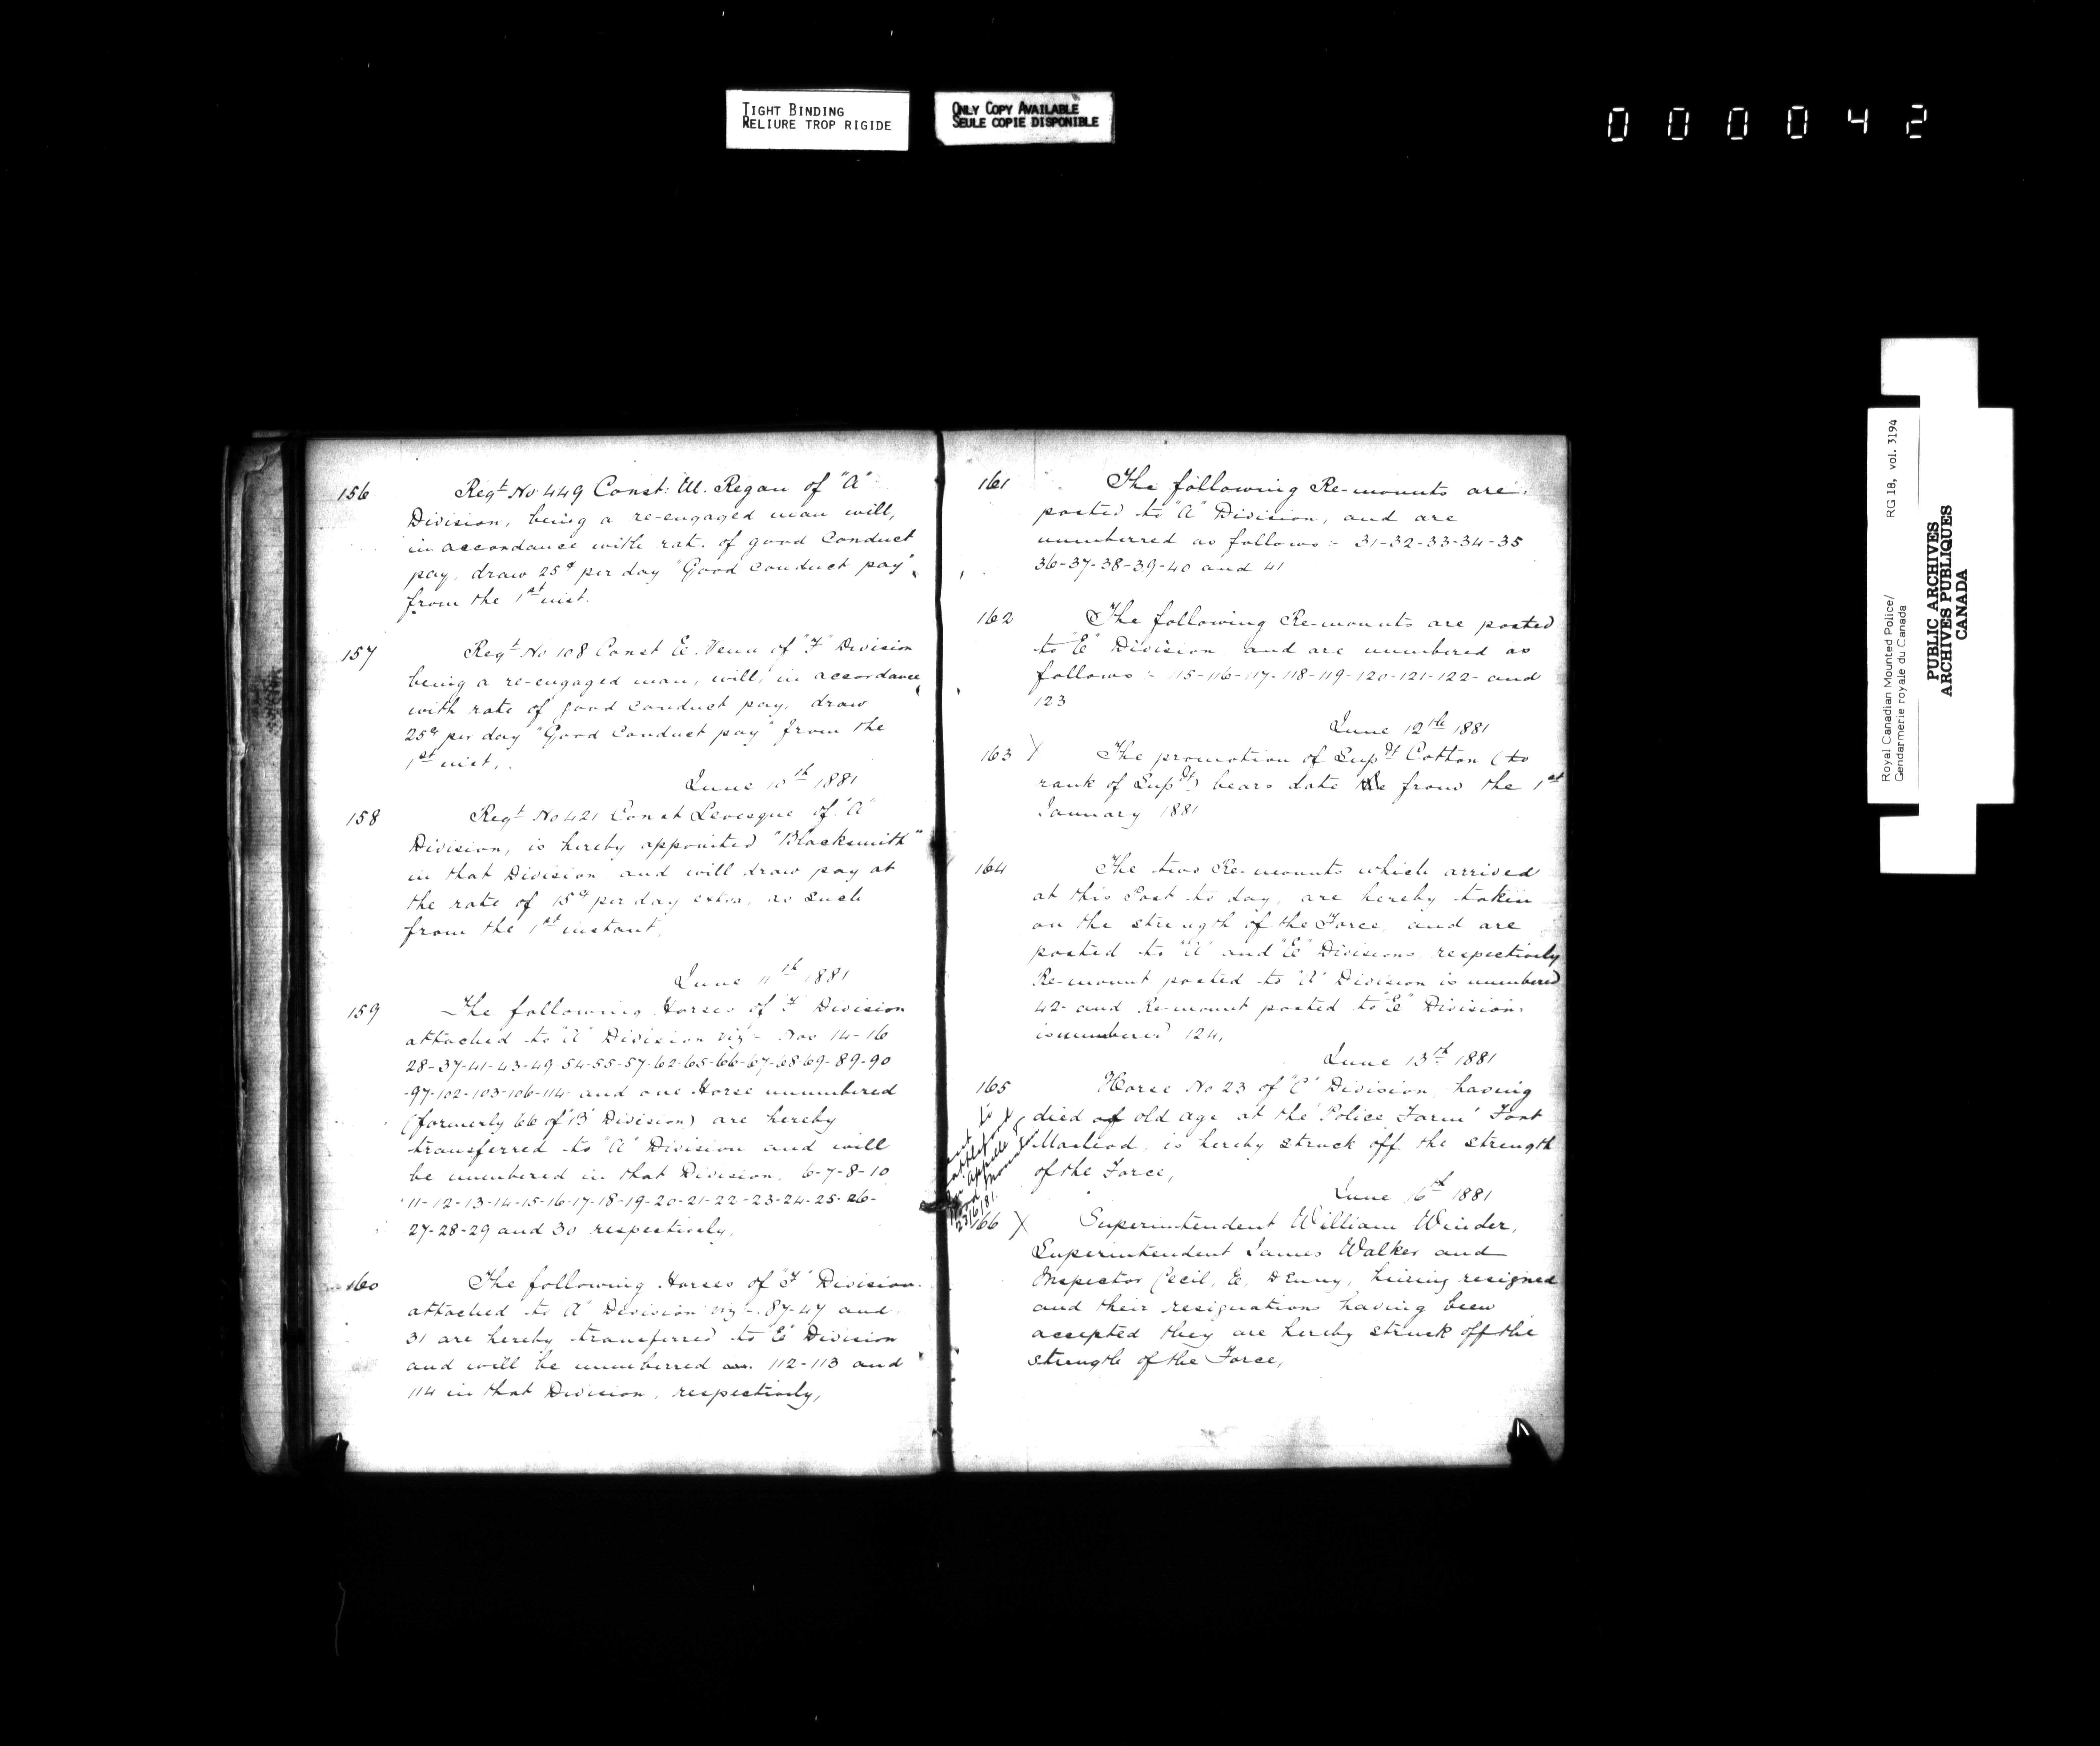 TIGHT BINDING
RELIURE TROP RIGIDE
ONLY COPY AVAILABLE
SEULE COPIE DISPONIBLE
000042
156 Regt No 449 Const: M. Regan of "A"
Division, being a re-engaged man will,
in accordance with rate of good Conduct
pay, draw 25¢ per day "Good Conduct pay"
from the 1st inst.
157 Regt No 108 Const E. Venn of "F" Division
being a re-engaged man, will, in accordance
with rate of good conduct pay, draw
25¢ per day "Good Conduct pay" from the
1st inst.
June 10th 1881
158 Regt No 421 Const Levesque of "A"
Division, is hereby appointed "Blacksmith"
in that Division and will draw pay at
the rate of 15¢ per day extra, as such
from the 1st instant
June 11th 1881
159 The following Horses of "F" Division
attached to "A" Division viz - Nos 14-16
28-37-41-43-49-54-55-57-62-65-66-67-68-69-89-90
-97-102-103-106-114- and one Horse unnumbered
(formerly 66 of "B" Division) are hereby
transferred to "A" Division and will
be numbered in that Division, 6-7-8-10
11-12-13-14-15-16-17-18-19-20-21-22-23-24-25-26-
27-28-29 and 30 respectively,
160 The following Horses of "F" Division
attached to "A" Division viz - 87-47 and
31 are hereby transferred to "E" Division
and will be numberred as. 112-113 and
114 in that Division, respectively,
161 The following Re-mounts are
posted to "A" Division, and are
numberred as follows :- 31-32-33-34-35
36-37-38-39-40 and 41
162 The following Re-mounts are posted
to "E" Division and are numbered as
follows :- 115-116-117-118-119-120-121-122- and
123
June 12th 1881
163 The promotion of Supdt Cotton (to
rank of Supdt) bears date from the 1st
January 1881
164 The two Re-mounts which arrived
at this Post to day, are hereby taken
on the strength of the Force, and are
posted to "A" and "E" Divisions respectively
Re-mount posted to "A" Division is numbered
42- and Re-mount posted to "E" Division
is numbered 124,
June 13th 1881
165 Horse No 23 of "C" Division, having
died of old age at the "Police Farm" Fort
Macleod, is hereby struck off the strength
of the Force,
June 16th 1881
23/6/81.
166 X Superintendent William Winder,
Superintendent James Walker and
Inspector Cecil, E, Denny, having resigned
and their resignations having been
accepted they are hereby struck off the
strength of the Force,
Royal Canadian Mounted Police/
Gendarmerie royale du Canada
RG 18, vol. 3194
PUBLIC ARCHIVES
ARCHIVES PUBLIQUES
CANADA